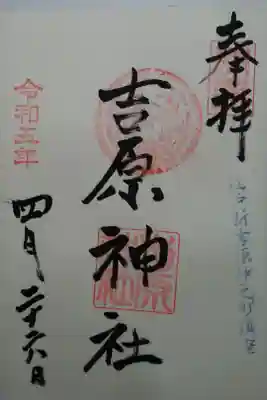 奉拝
吉原神社
令和三年
四月二十六日